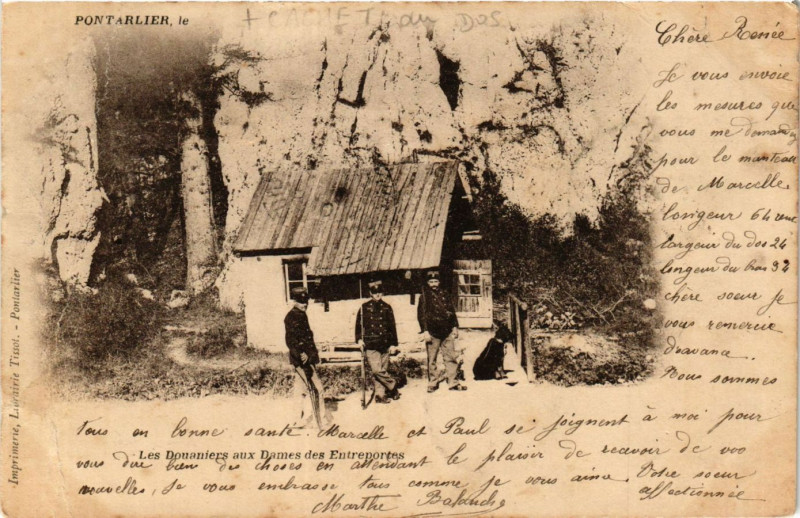 PONTARLIER, le
+ CACHET au DOS
Chère Renée
Je vous envoie
les mesures que
vous me demandez
pour le manteau
de Marcelle
longeur 64 cent
largeur du dos 24
longeur du bras 34
chère soeur je
vous remercie
d'avance.
Nous sommes
tous en bonne santé. Marcelle et Paul se joignent à moi pour
Les Douaniers aux Dames des Entreportes
vous dire bien des choses en attendant le plaisir de recevoir de vos
nouvelles, je vous embrasse tous comme je vous aime. Votre soeur
affectionnée
Marthe
Imprimerie, Librairie Tissot. - Pontarlier